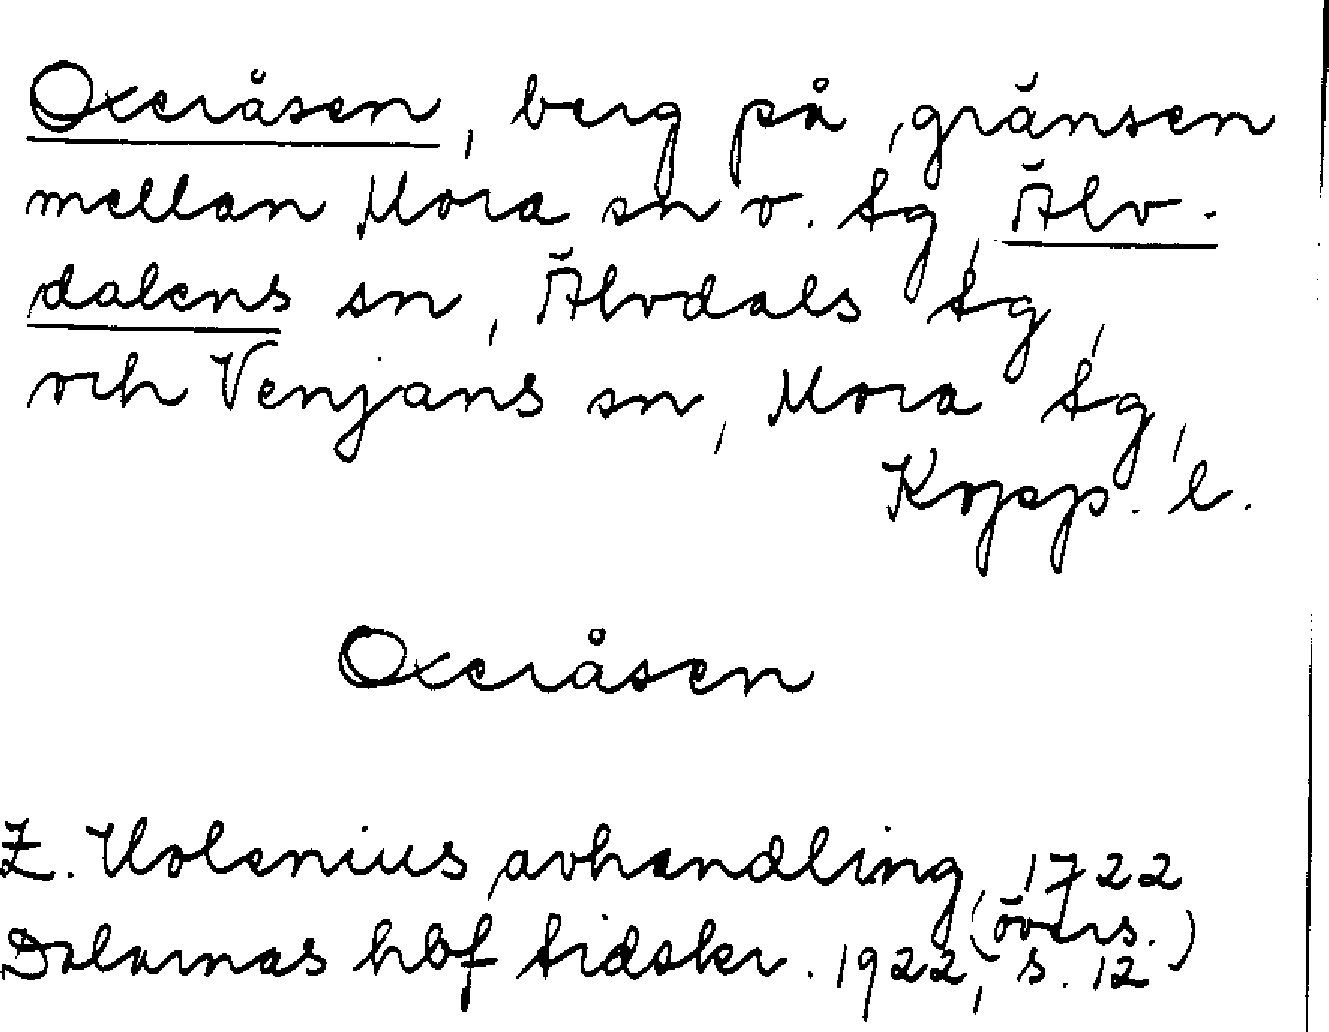 Oxeråsen, berg på gränsen
mellan Mora sn o. tg, Älv-
dalens sn, Älvdals tg,
och Venjans sn, Mora tg,
Kopp. l.
Oxeråsen
Z. Holenius avhandling, 1722
(övers.)
Dalarnas hbf tidskr. 1922, s. 12